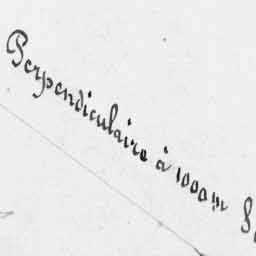 Perpendiculaire à 1000m